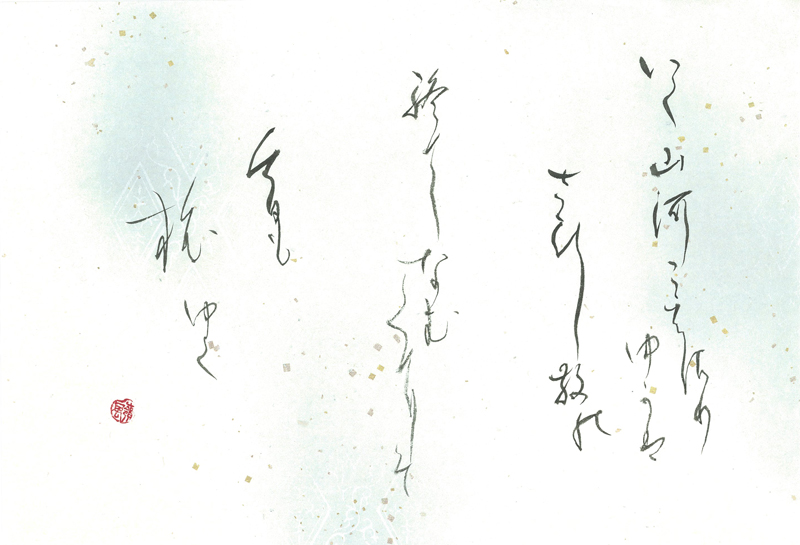 いく山河こえさり
ゆかば
さびし散能
終てなむ
くにぞ
今日も
旅ゆく